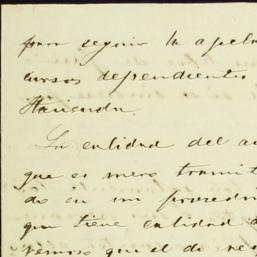 para seguir la apela
cursos dependientes
Hacienda.
La calidad del au
que es mero tramit
do en un procedi
que tiene calidad d
remoso que el de re